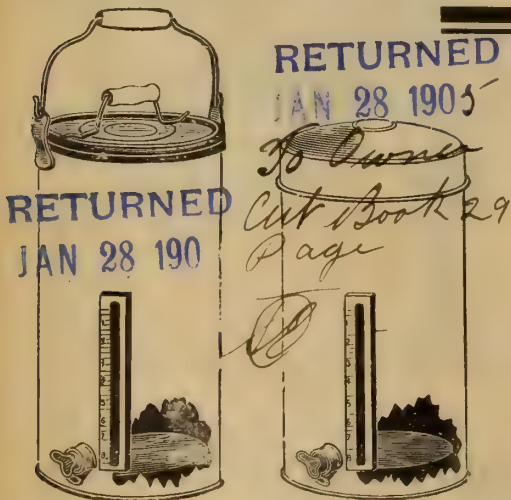 RETURNED
JAN 28 1905
To Owner
Cut Book 29
Page
RETURNED
JAN 28 190